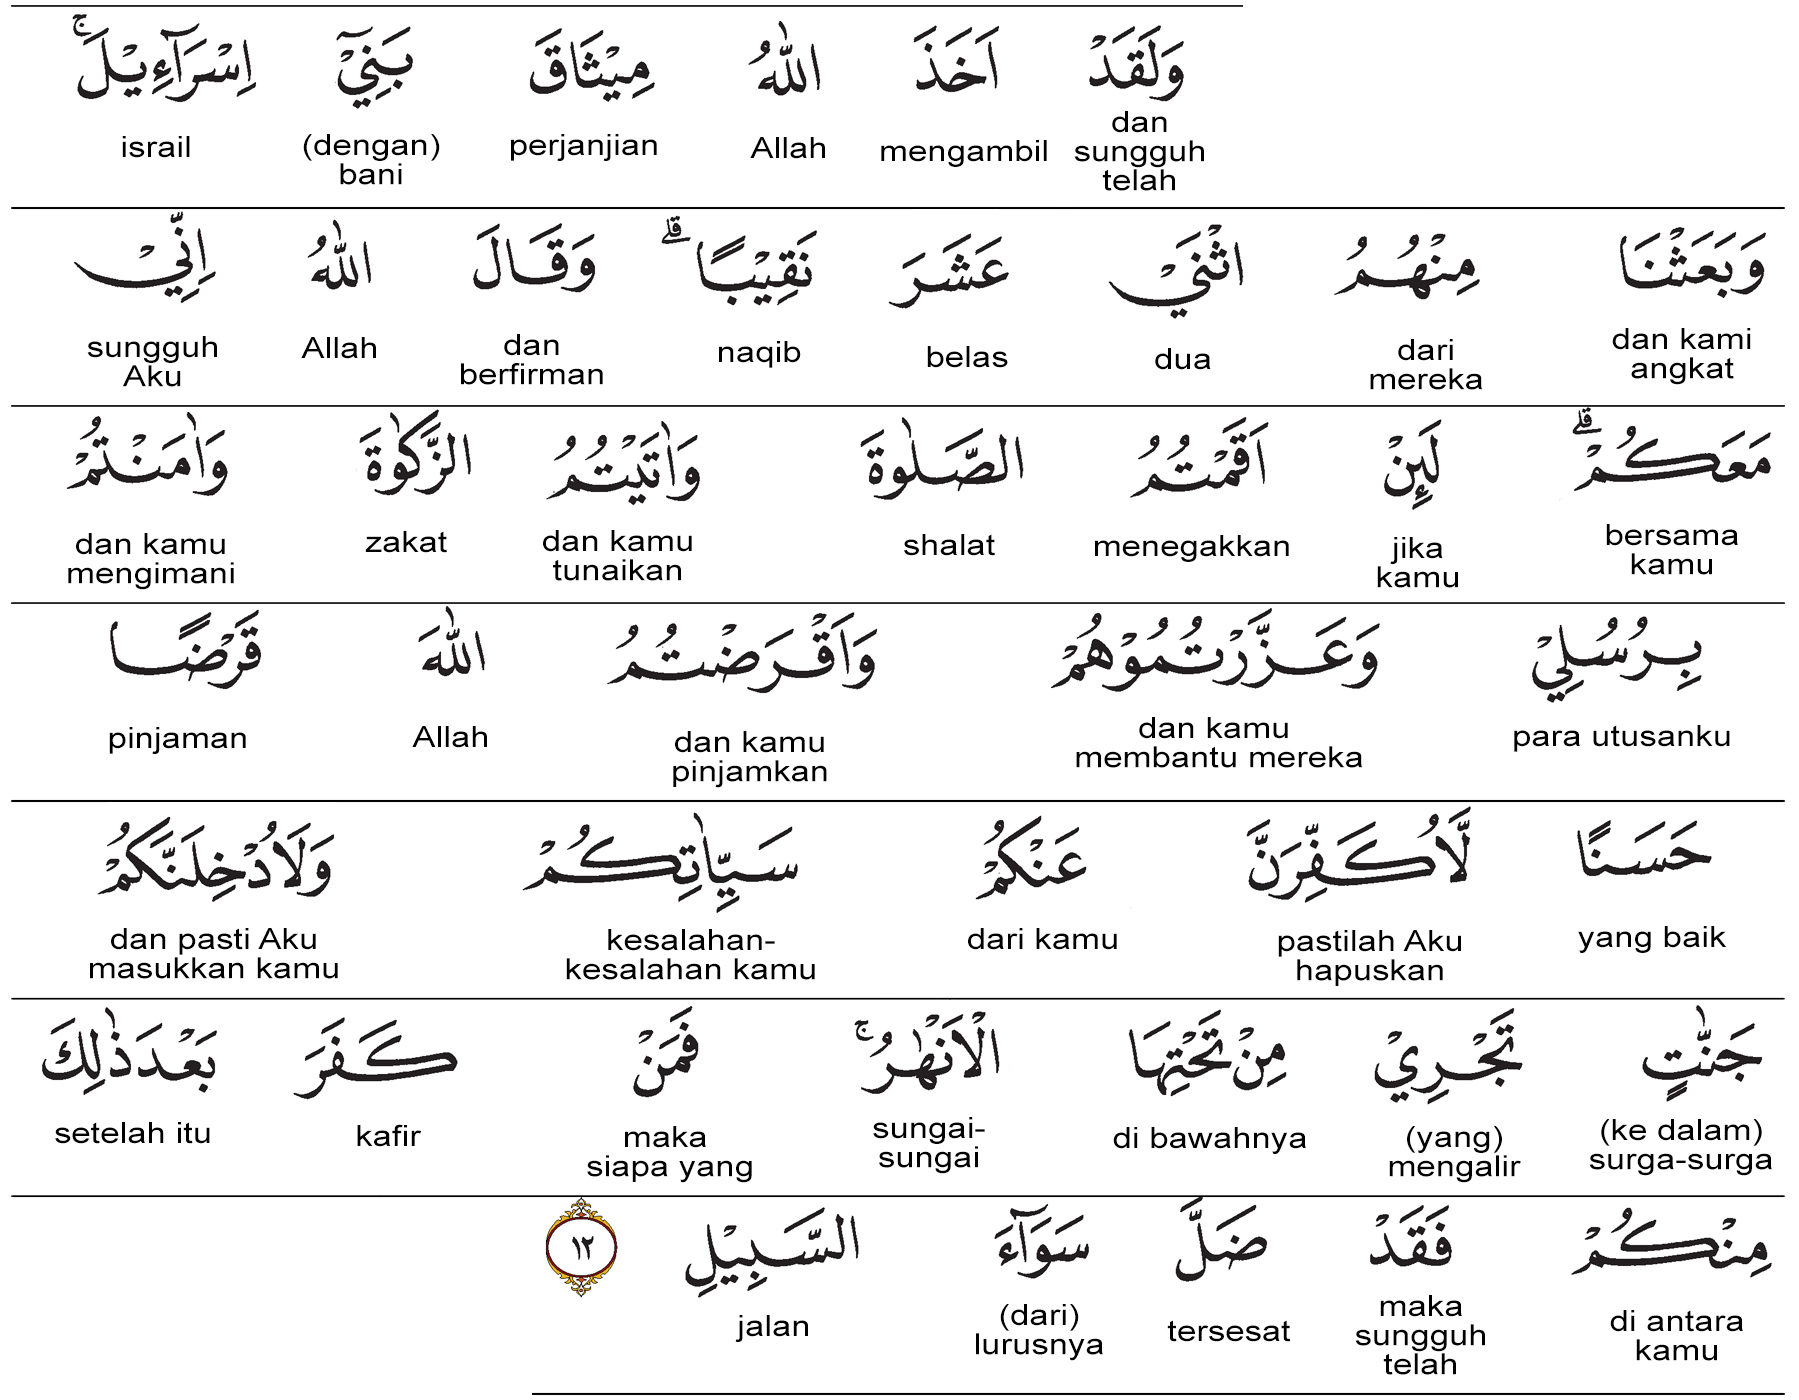 وَلَقَدْ اَخَذَ اللّٰهُ مِيْثَاقَ بَنِيْٓ اِسْرَآءِيْلَۚ
dan sungguh telah mengambil Allah perjanjian (dengan) bani israil
وَبَعَثْنَا مِنْهُمُ اثْنَيْ عَشَرَ نَقِيْبًاۗ وَقَالَ اللّٰهُ اِنِّيْ
dan kami angkat dari mereka dua belas naqib dan berfirman Allah sungguh Aku
مَعَكُمْۗ لَىِٕنْ اَقَمْتُمُ الصَّلٰوةَ وَاٰتَيْتُمُ الزَّكٰوةَ وَاٰمَنْتُمْ
bersama kamu jika kamu menegakkan shalat dan kamu tunaikan zakat dan kamu mengimani
بِرُسُلِيْ وَعَزَّرْتُمُوْهُمْ وَاَقْرَضْتُمُ اللّٰهَ قَرْضًا
para utusanku dan kamu membantu mereka dan kamu pinjamkan Allah pinjaman
حَسَنًا لَّاُكَفِّرَنَّ عَنْكُمْ سَيِّاٰتِكُمْ وَلَاُدْخِلَنَّكُمْ
yang baik pastilah Aku hapuskan dari kamu kesalahan-kesalahan kamu dan pasti Aku masukkan kamu
جَنّٰتٍ تَجْرِيْ مِنْ تَحْتِهَا الْاَنْهٰرُۚ فَمَنْ كَفَرَ بَعْدَ ذٰلِكَ
(ke dalam) surga-surga (yang) mengalir di bawahnya sungai-sungai maka siapa yang kafir setelah itu
مِنْكُمْ فَقَدْ ضَلَّ سَوَآءَ السَّبِيْلِ ١٢
di antara kamu maka sungguh telah tersesat (dari) lurusnya jalan